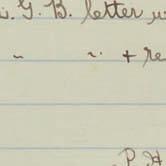 G. B. letter
" " + re
P. H